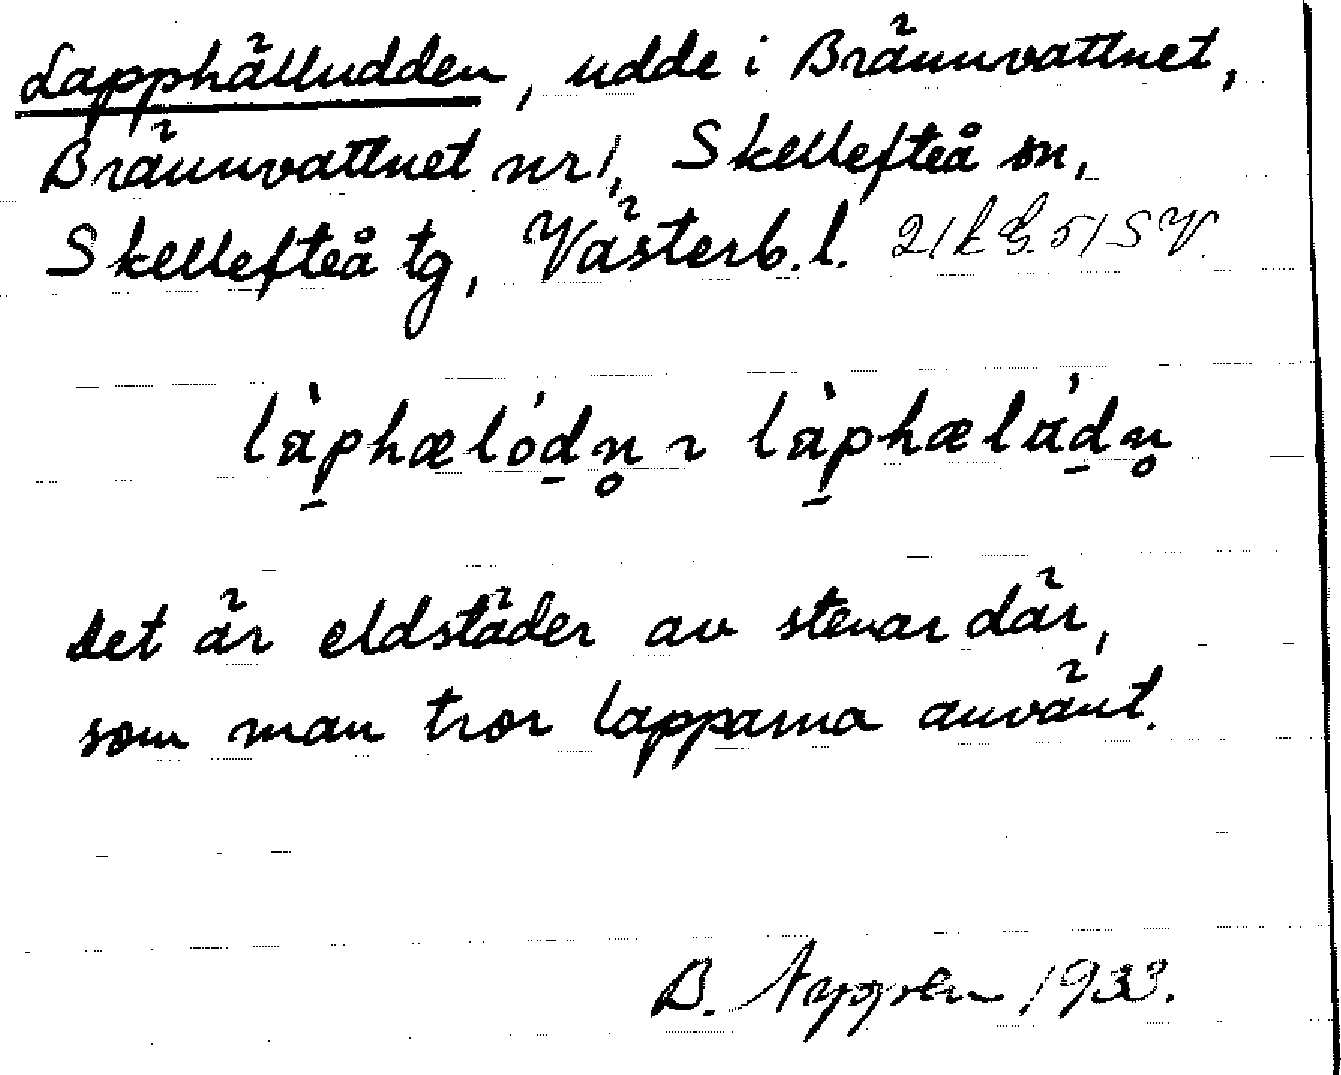 Lapphälludden, udde i Brännvattnet,
Brännvattnet nr 1, Skellefteå sn,
Skellefteå tg, Västerb. l.
làphælódn̥ ~ làphæládn̥
det är eldstäder av stenar där,
som man tror lapparna använt.
B. 1933.